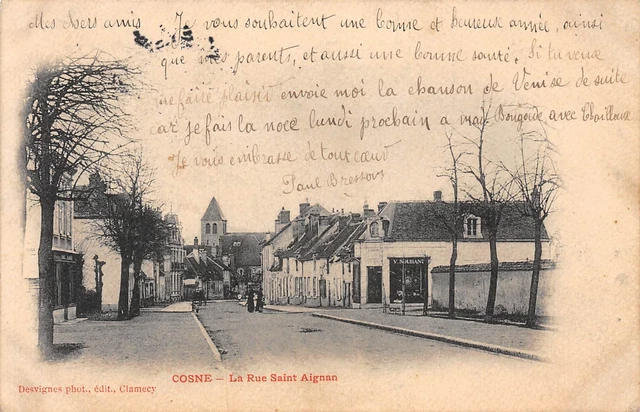 Mes chers amis Je vous souhaitent une bonne et heureuse année, ainsi
que mes parents, et aussi une bonne santé. Si tu veux
me faire plaisir envoie moi la chanson de Venise de suite
car je fais la noce lundi prochain a avec
Je vous embrasse de tout cœur
Paul
V. NOUHANT
COSNE – La Rue Saint Aignan
Desvignes phot., édit., Clamecy